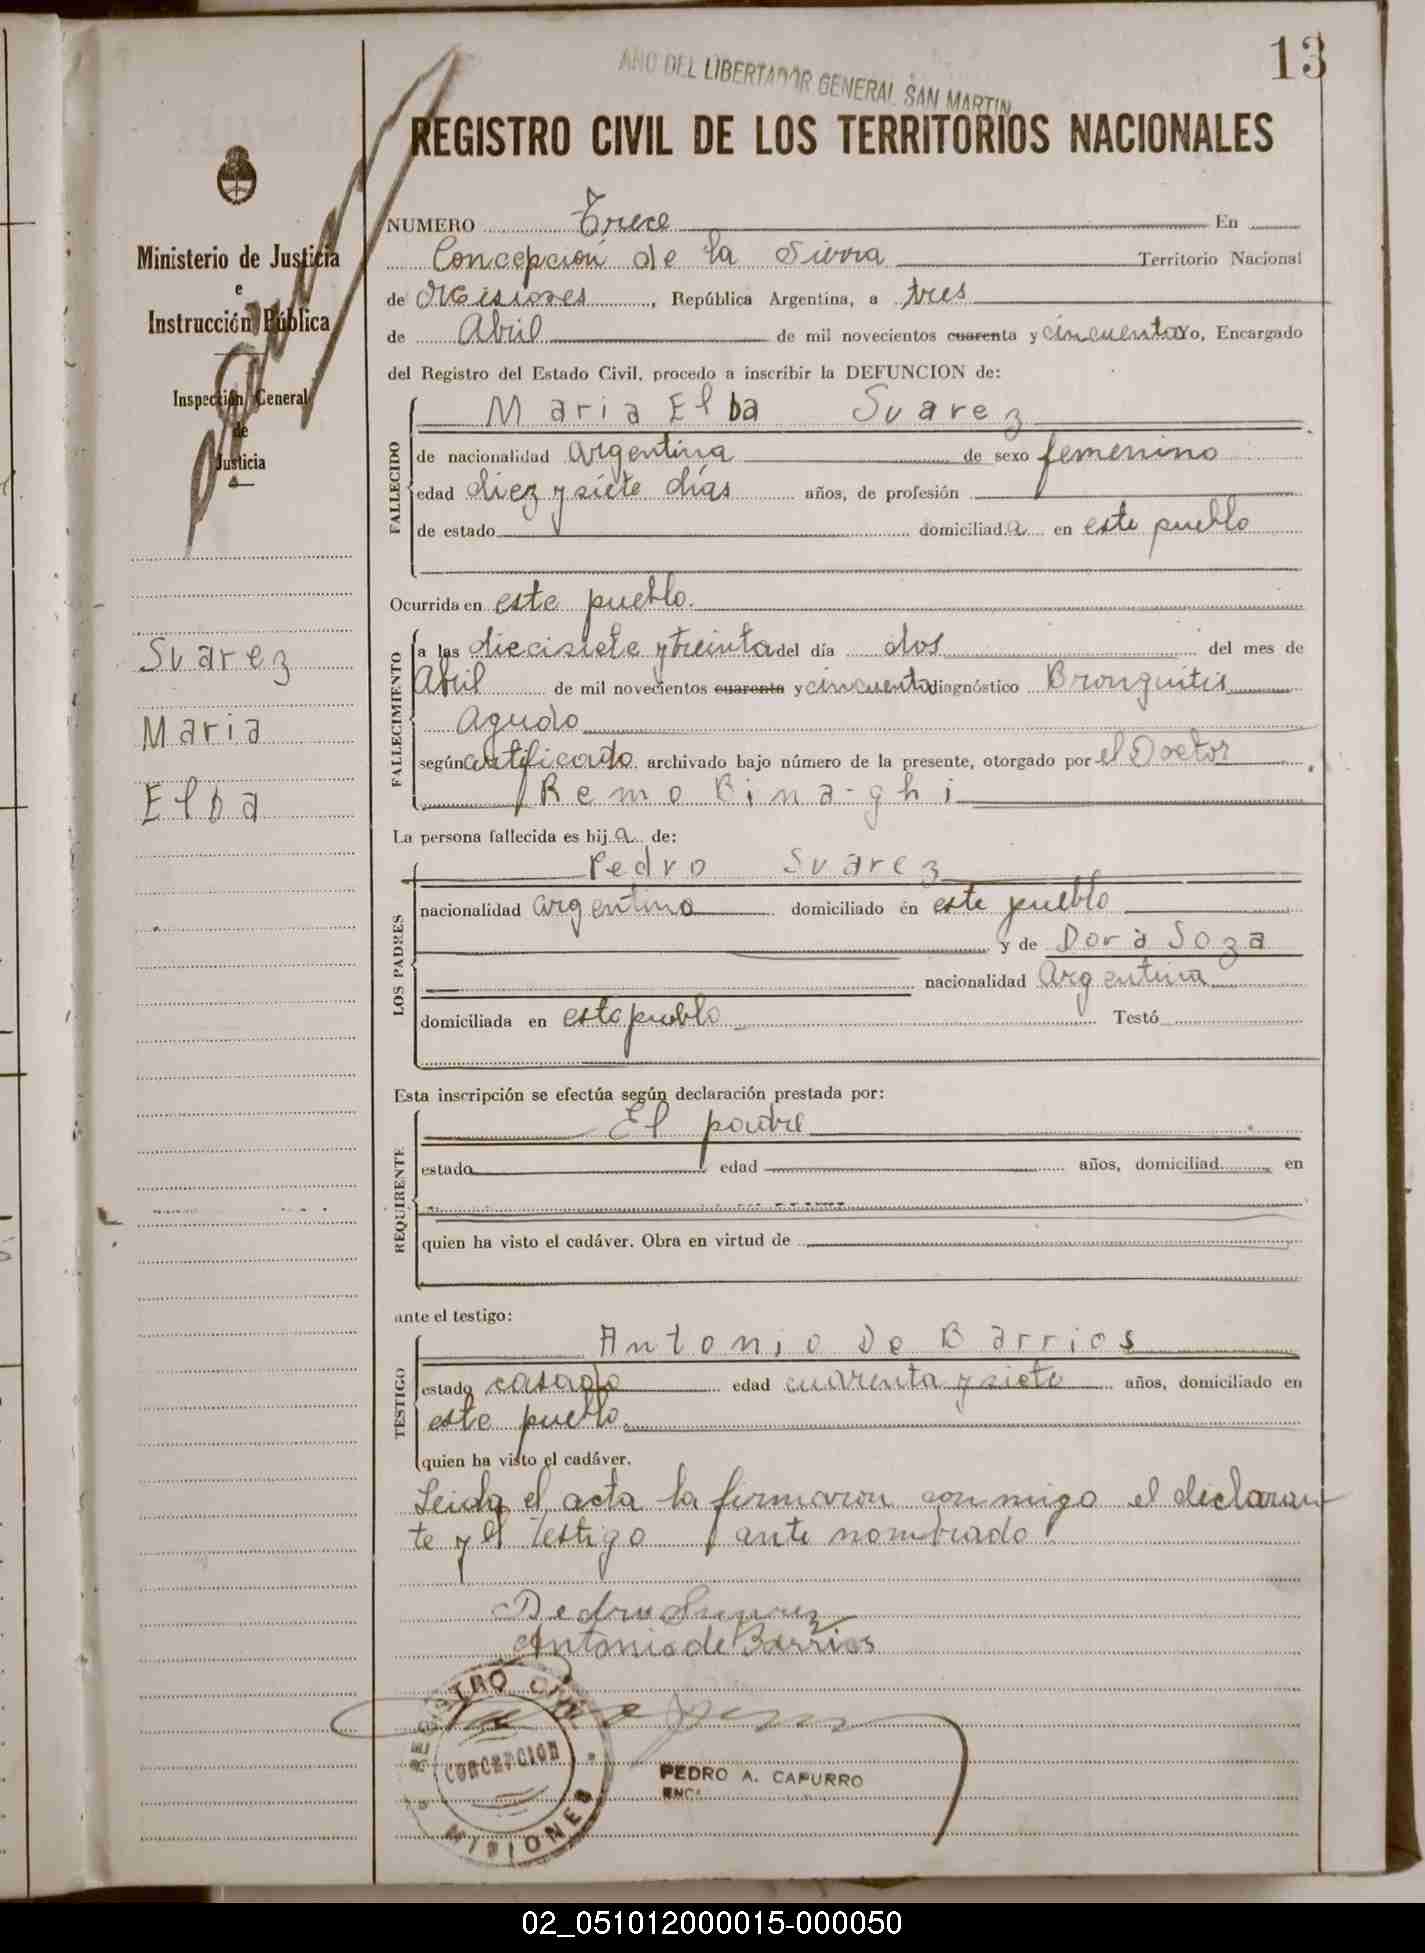 13
AÑO DEL LIBERTADOR GENERAL SAN MARTIN
REGISTRO CIVIL DE LOS TERRITORIOS NACIONALES
Ministerio de Justicia
e
Instrucción Pública
Inspección General
de
Justicia
Suarez
Maria
Elba
NUMERO Trece En
Concepción de la Sierra Territorio Nacional
de Misiones, República Argentina, a tres
de Abril de mil novecientos cuarenta y cincuenta Yo, Encargado
del Registro del Estado Civil, procedo a inscribir la DEFUNCION de:
Maria Elba Suarez
FALLECIDO
de nacionalidad Argentina de sexo femenino
edad diez y siete días años, de profesión
de estado domiciliad a en este pueblo
Ocurrida en este pueblo.
FALLECIMIENTO
a las diecisiete y treinta del día dos del mes de
Abril de mil novecientos cuarenta y cincuenta diagnóstico Bronquitis
Aguda
según certificado archivado bajo número de la presente, otorgado por el Doctor
Remo Bina-ghi
La persona fallecida es hij a de:
Pedro Suarez
LOS PADRES
nacionalidad argentino domiciliado en este pueblo
y de Dora Soza
nacionalidad Argentina
domiciliada en este pueblo Testó
Esta inscripción se efectúa según declaración prestada por:
El padre
REQUIRENTE
estado edad años, domiciliad en
quien ha visto el cadáver. Obra en virtud de
ante el testigo:
Antonio De Barrios
TESTIGO
estado casado edad cuarenta y siete años, domiciliado en
este pueblo
quien ha visto el cadáver.
Leida el acta la firmaron conmigo el declaran
te y el testigo ante nombrado.
Pedro Suarez
Antonio de Barrios
REGISTRO CIVIL
CONCEPCION
MISIONES
PEDRO A. CAPURRO
ENC
02_051012000015-000050